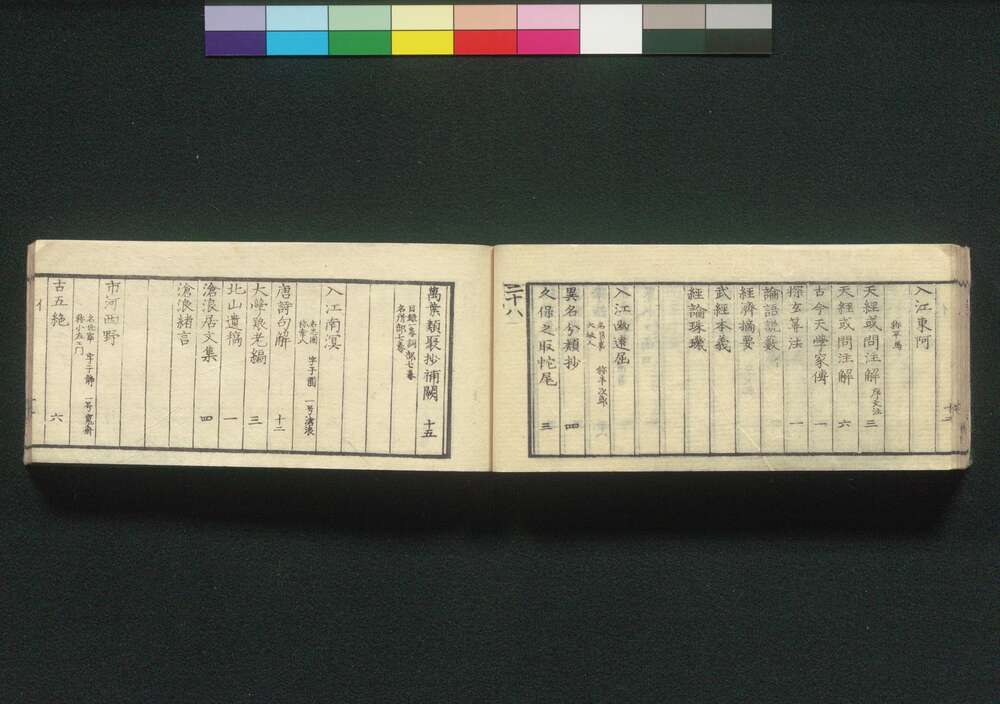 入江東阿
称平馬
天經或問注解 序文注 三
天經或問注解 六
古今天學家傳 一
探玄筭法 一
論語説數
經濟摘要
武經本義
經論珠璣
入江幽遠屈
称半次郎
大坂人
異名分類抄 四
久保之取蛇尾 三
三十八
萬葉類聚抄補闕 十五
目録一巻詞部七巻
名所部七巻
入江南溟
字子園 一号滄浪
唐詩句解 十二
大學 三
北山遺稿 一
滄浪居文集 四
滄浪緒言
市河西野
字子静 一号寛齋
称小左ヱ門
古五絶 六
イ